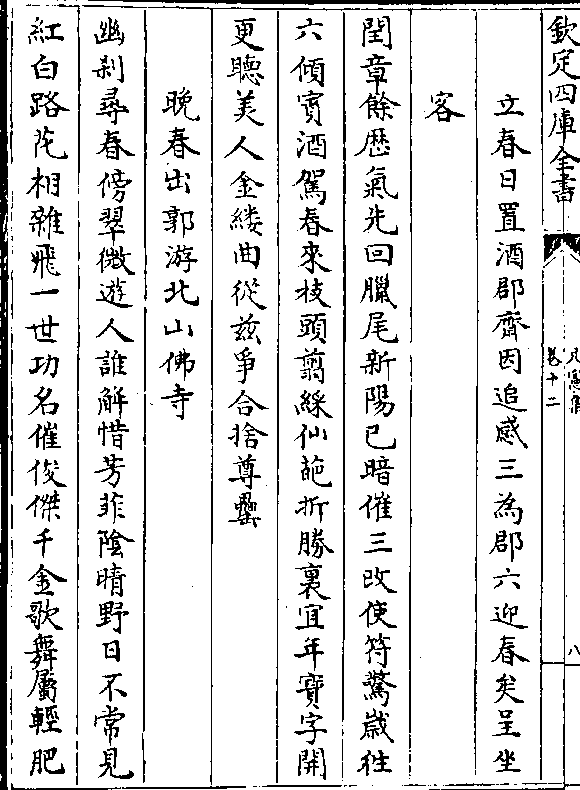 欽定四庫全書
卷十二
八
立春日置酒郡齊因追感三為郡六迎春矣呈坐
客
閏章餘歴氣先回臘尾新陽已暗催三改使符驚歲徃
六傾賓酒駕春來枝頭翦綵仙葩折勝裏宜年寶字開
更聽美人金縷曲從兹爭合捨尊罍
晚春出郭游北山佛寺
幽刹尋春傍翠微遊人誰解惜芳菲陰晴野日不常見
紅白路花相雜飛一世功名催俊傑千金歌舞屬輕肥